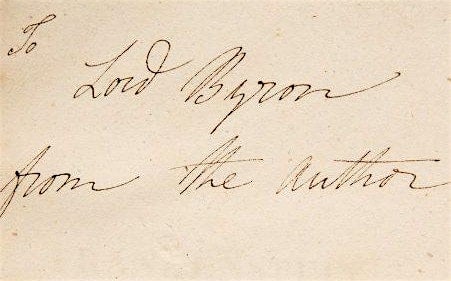 To
Lord Byron
from the author